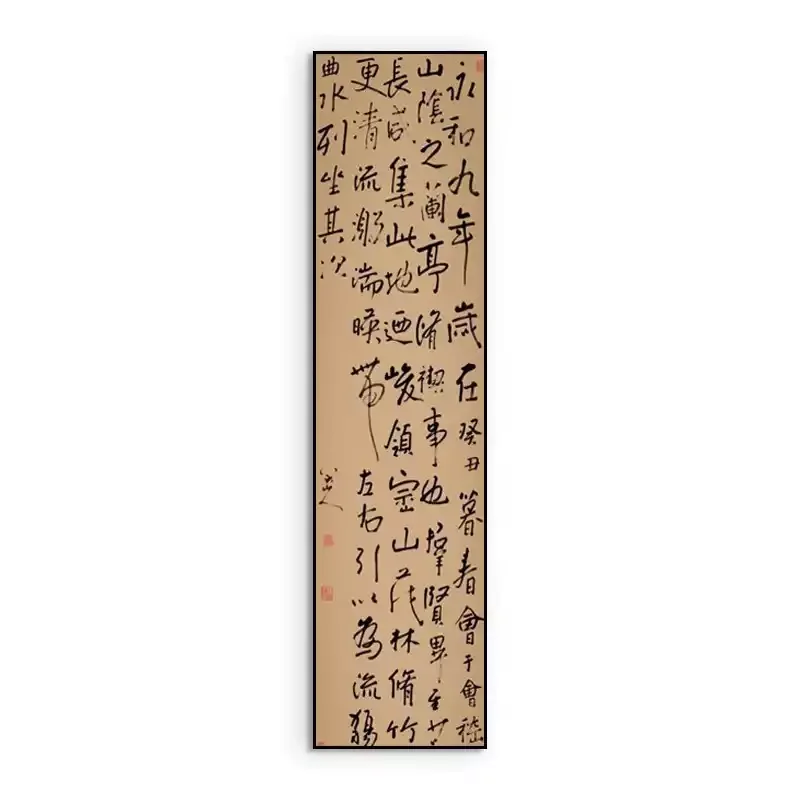 永和九年歲在癸丑暮春會于會嵇
山陰之蘭亭脩禊事也羣賢畢至少
長咸集此地迺峻領崇山茂林脩竹
更清流激湍暎帶左右引以為流觴
曲水列坐其次
八大山人